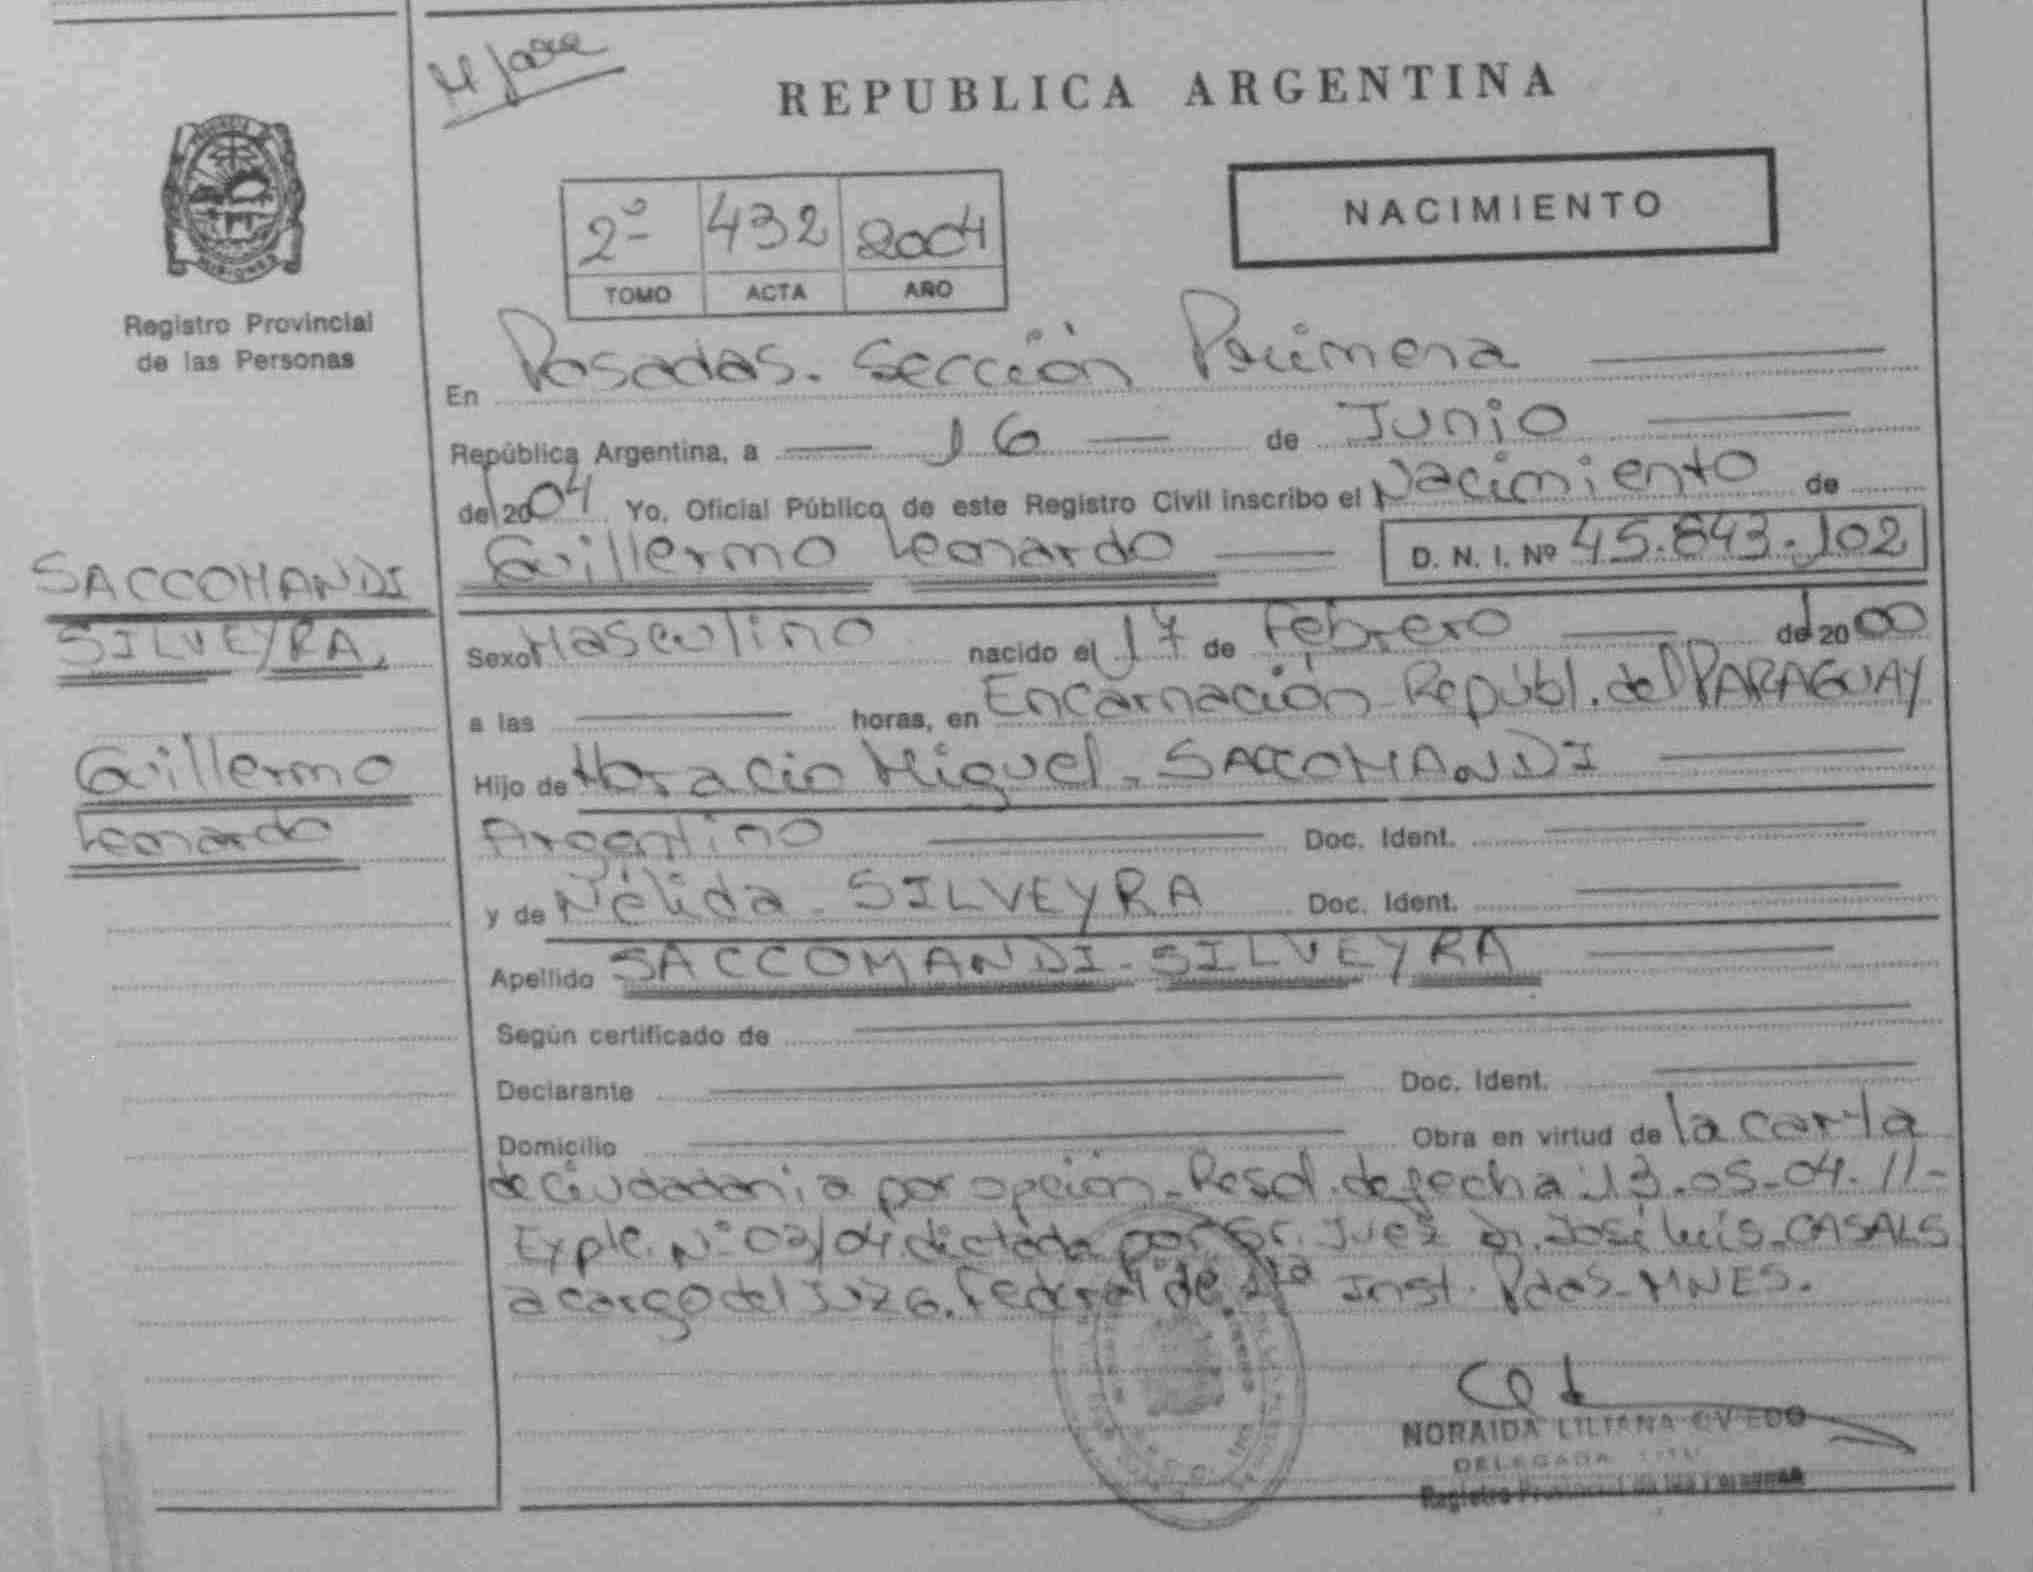 REPUBLICA ARGENTINA
NACIMIENTO
2º 432 2004
TOMO ACTA AÑO
PROVINCIA
MISIONES
Registro Provincial
de las Personas
En Posadas. Sección Primera
República Argentina, a 16 de Junio
del 2004 Yo, Oficial Público de este Registro Civil inscribo el Nacimiento de
Guillermo Leonardo D. N. I. Nº 45.843.102
SACCOMANDI
SILVEYRA,
Guillermo
Leonardo
Sexo Masculino nacido el 17 de Febrero del 2000
a las horas, en Encarnación - Republ. del PARAGUAY
Hijo de Horacio Miguel - SACCOMANDI
Argentino Doc. Ident.
y de Nélida - SILVEYRA Doc. Ident.
Apellido SACCOMANDI - SILVEYRA
Según certificado de
Declarante Doc. Ident.
Domicilio Obra en virtud de la carta
de Ciudadania por opción - Resol. de fecha 13.05-04. //-
Expte. Nº 03/04 dictada por Sr. Juez Dr. José Luis - CASALS
a cargo del JUZG. Federal de 1ra Inst. Pdas - MNES.
NORAIDA LILIANA OVIEDO
DELEGADA
Registro Provincial de las Personas